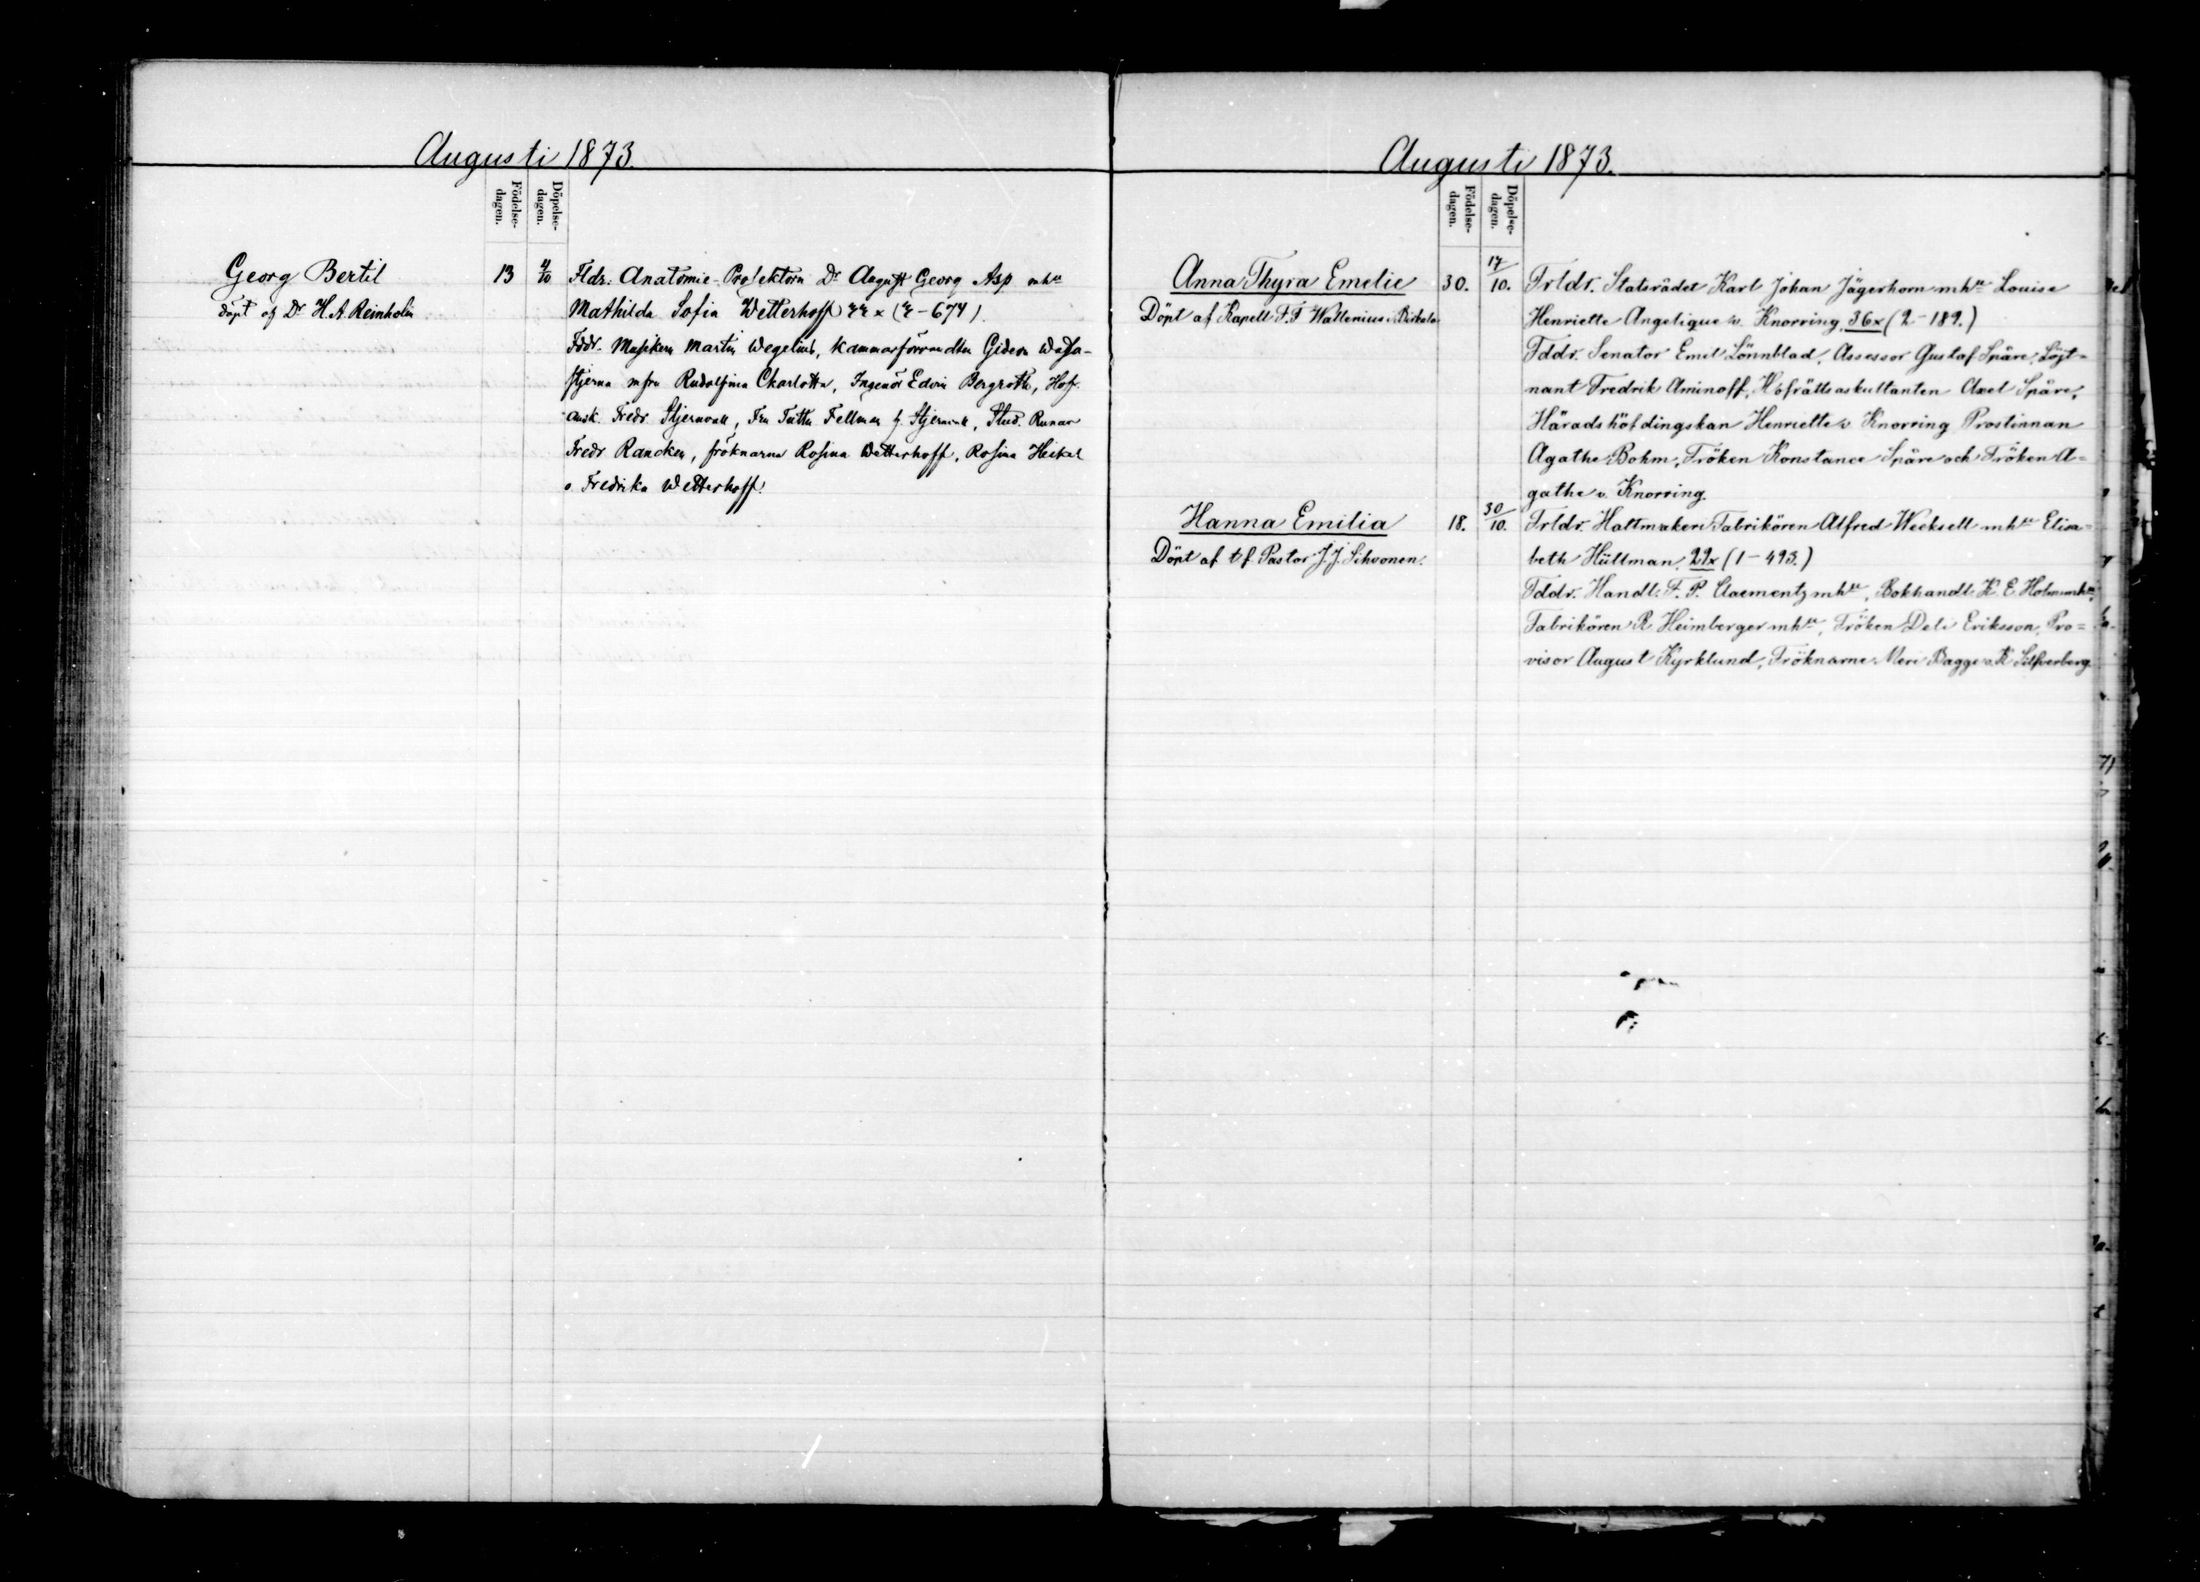 Augusti 1873.
Födelse-
dagen.
Döpelse-
dagen.
Georg Bertil 13 4/10 Fldr. Anatomie-Prosektorn Dr August Georg Asp mhu
döpt af Dr H. A. Reinholm Mathilda Sofia Wetterhoff
Fddr. Musikern Martin Wegelius, Kammarförvandten Gideon Wasa-
stjerna m fru Rudolfina Charlotta, Ingeniör Edvin Bergroth, Hofr.
ausk. Fredr Stjernvall, Fru Tutta Fellman f. Stjernvall, Stud. Runar
Fredr Rancken, fröknarna Rosina Wetterhoff, Rosina Heikel
o Fredrika Wetterhoff.
Augusti 1873.
Födelse-
dagen.
Döpelse-
dagen.
Anna Thyra Emelie 30. 17/10. Frldr. Statsrådet Karl Johan Jägerhorn mhu Louise
Döpt af Kapell. F. F Wallenius i Birkala Henriette Angelique v. Knorring. 36x (2-189.)
Fddr. Senator Emil Lönnblad, Assessor Gustaf Spåre, Löjt=
nant Fredrik Aminoff, Hofrättsauskultanten Axel Spåre,
Häradshöfdingskan Henriette v Knorring Prostinnan
Agathe Bohm, Fröken Konstance Spåre och Fröken A=
gathe v. Knorring.
Hanna Emilia 18. 30/10. Frldr. Hattmakeri Fabrikören Alfred Wecksell mhu Elisa=
Döpt af t.f. Pastor J. J. Sihvonen. beth Hüttman, 29x (1-493.)
Fddr. Handl. F. P. Claementz mhu, Bokhandl. K. E. Holm mhu,
Fabrikören R. Heimberger mhu, Fröken Deli Eriksson, Pro=
visor August Kyrklund, Fröknarne Meri Bagge o. K Silfverberg.